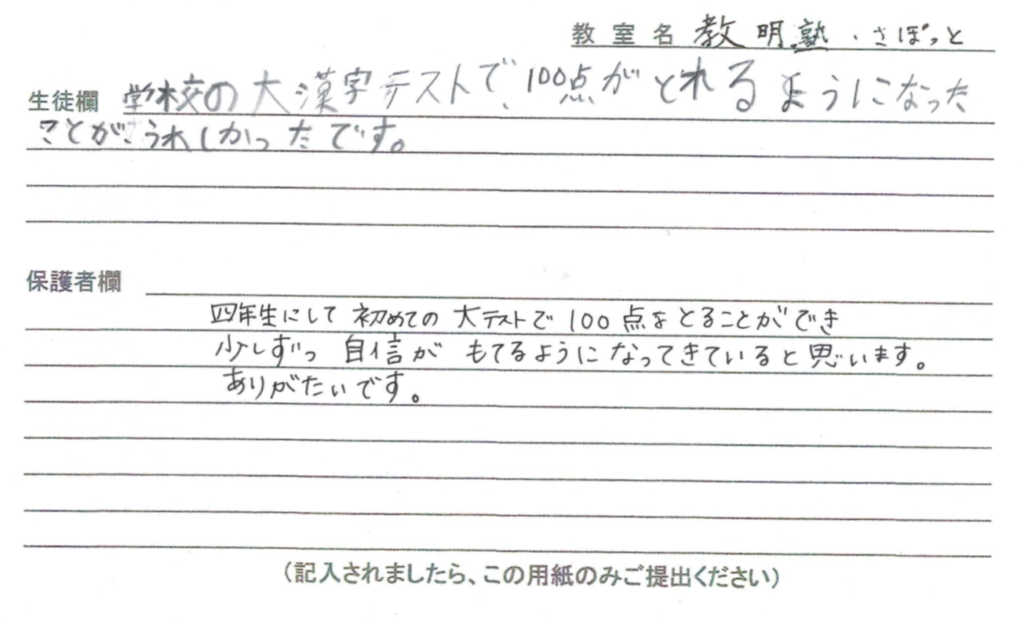 教室名 教明塾・さぽっと
生徒欄 学校の大漢字テストで、100点がとれるようになった
ことがうれしかったです。
保護者欄
四年生にして 初めての 大テストで 100点をとることができ
少しずつ 自信が もてるようになってきていると思います。
ありがたいです。
(記入されましたら、この用紙のみご提出ください)